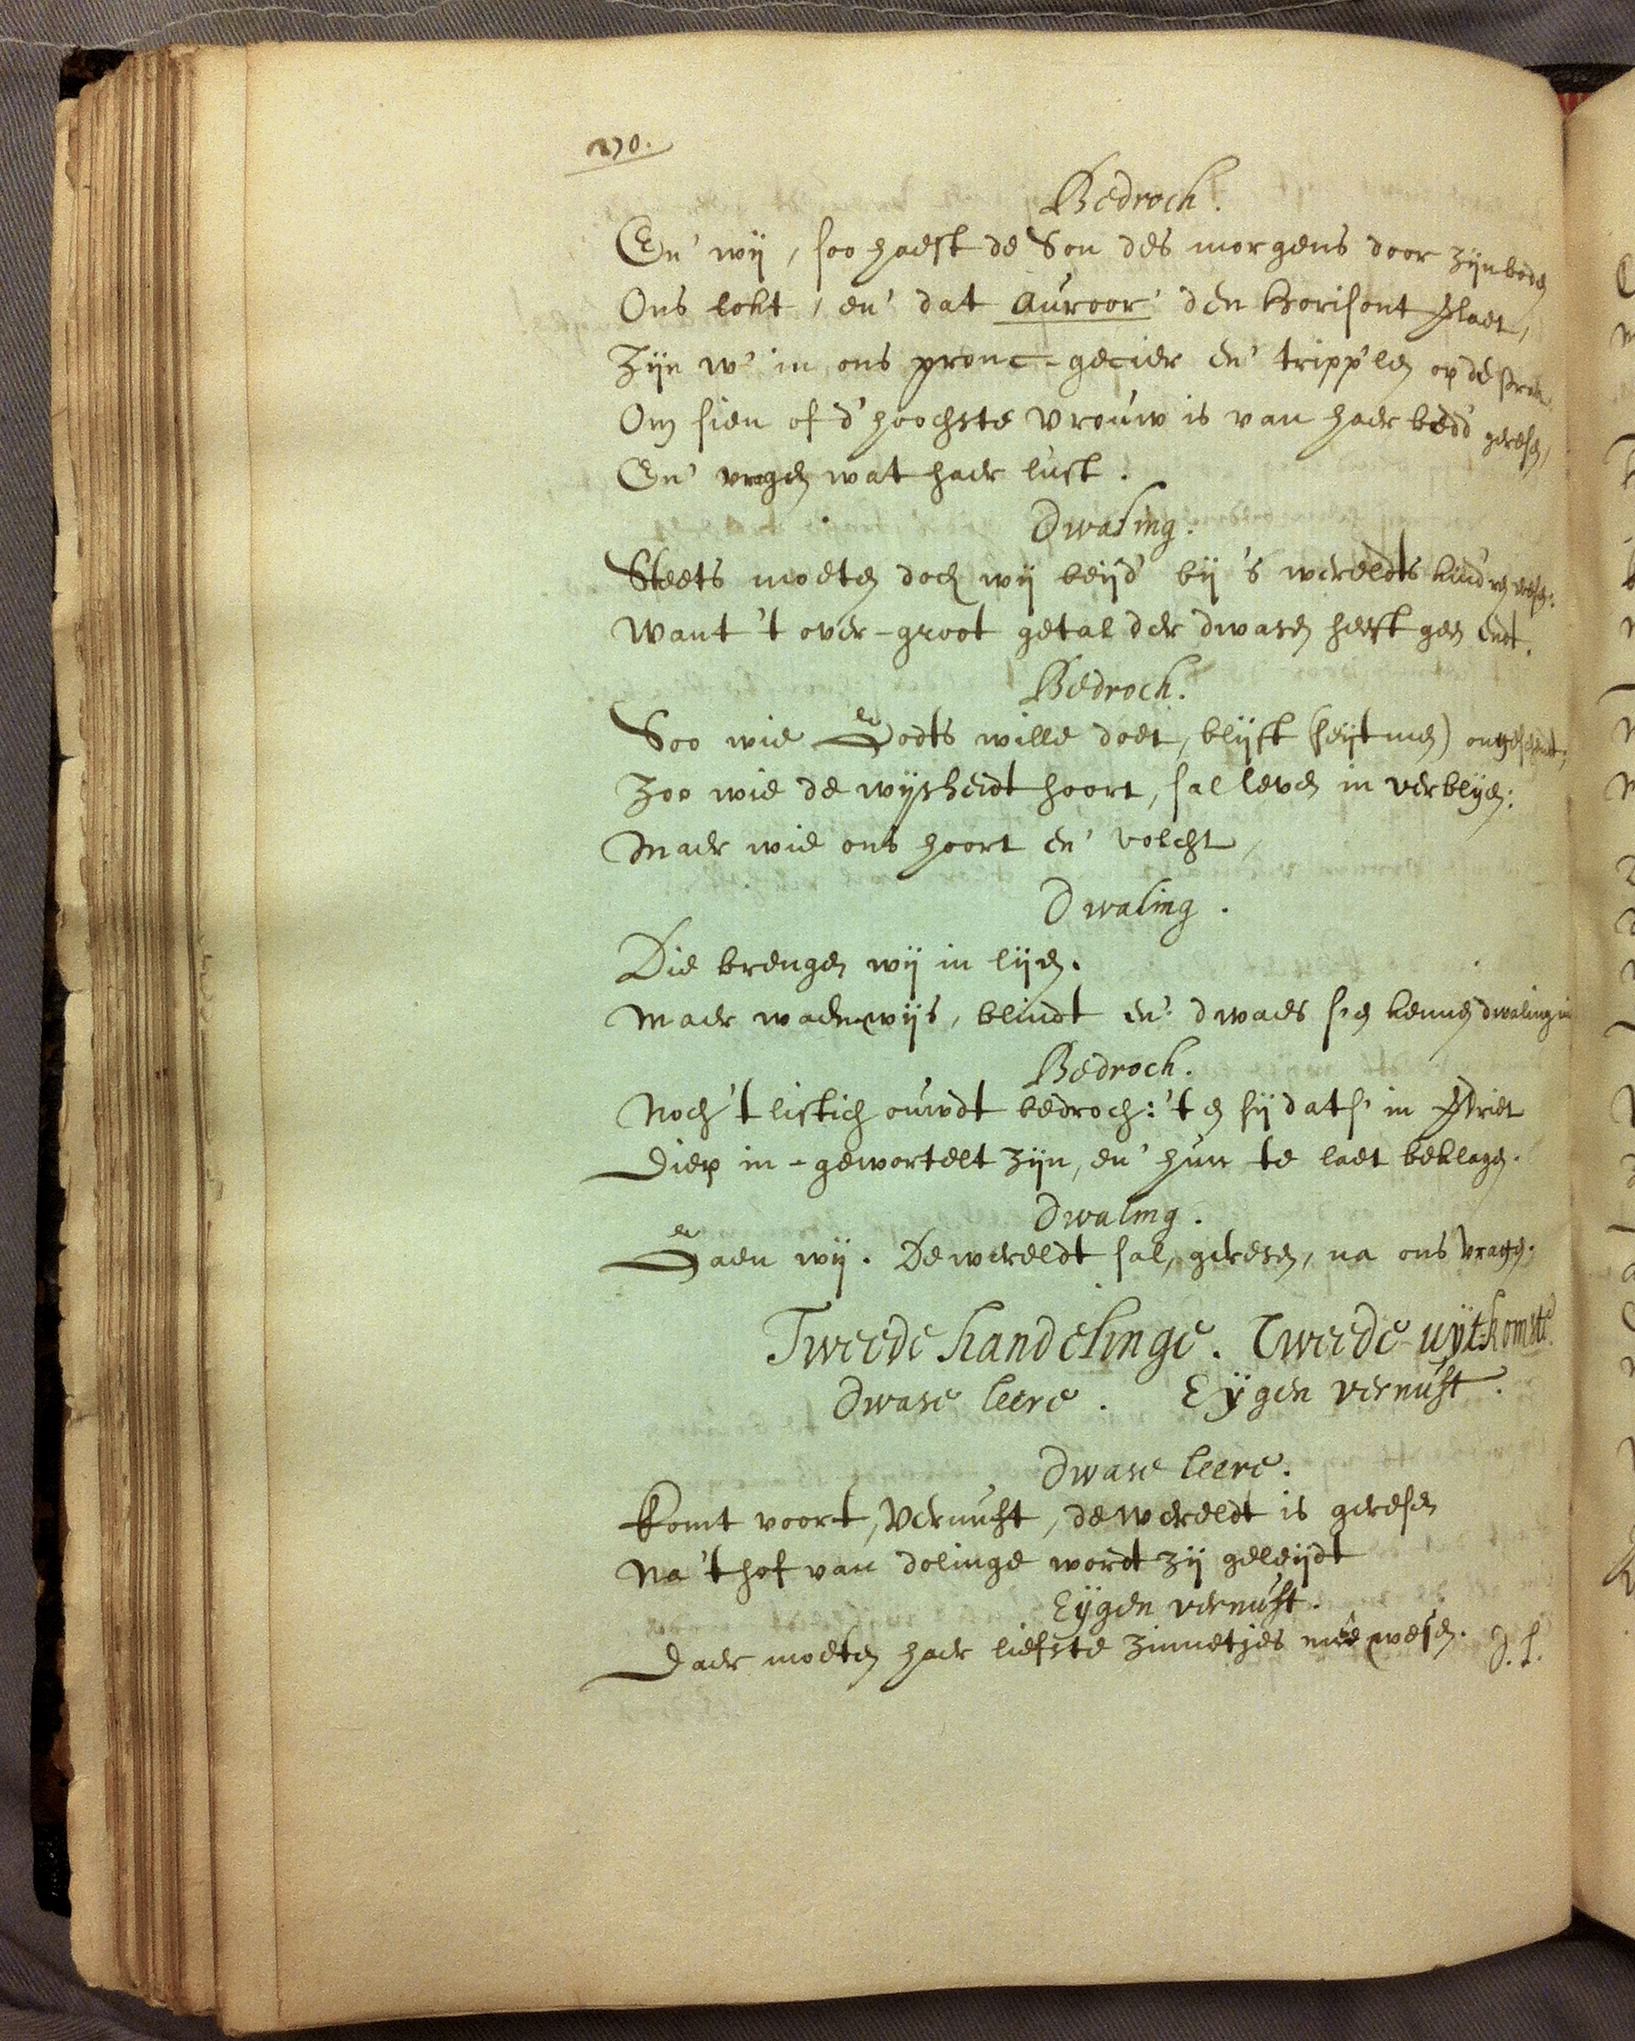 270.
Bedroch.
En' wij, soo haest de Son des morgens door zijn boden
Ons lokt, en' dat Auroor' den horisont
Zijn w' in ons pronc-gecier en' tripp'len op de
Om sien of d' hoochste vrouw is van haer bedd' geresen,
En' vragen wat haer lust.
Dwaling.
Steets moeten doch wij beijd' bij 's werelts kind'ren wesen:
Want 't over-groot getal der dwasen heeft geen endt.
Bedroch.
Soo wie Godts wille doet, blijft (seijtmen) ongeschent;
Zoo wie de wijsheidt hoort, sal leven in verblijen:
Maer wie ons hoort en' volcht,
Dwaling.
Die brengen wij in lijen.
Maer waenwijs, blindt en' dwaes s'en kennen dwaling
Bedroch.
Noch 't listich ouwdt bedroch: 't en sij dats' in
Diep in-gewortelt zijn, en' hun te laet beklagen.
Dwaling.
Gaen wij. De wereldt sal, geresen, na ons vragen.
Tweede handelinge. Tweede uijtkomste.
Dwase leere. Eijgen vernuft.
Dwase leere.
Komt voort, Vernuft, de wereldt is geresen
Na 't hof van dolinge wordt zij geleijdt
Eijgen vernuft.
Daer moeten haer liefste zinnetjes mêe wesen.